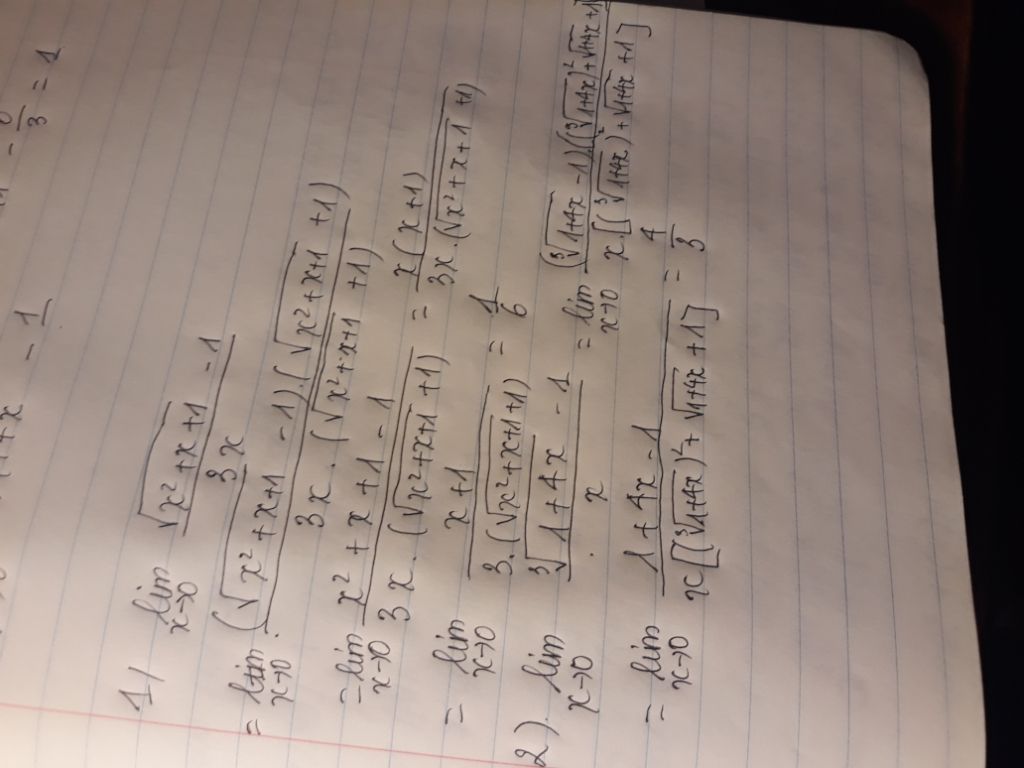 = 0/3 = 1
1+x - 1
1) lim x→0 (√(x²+x+1) - 1)/(3x)
= lim x→0 ((√(x²+x+1) - 1).(√(x²+x+1) +1))/(3x.(√(x²+x+1) +1))
= lim x→0 (x²+x+1-1)/(3x.(√(x²+x+1) +1)) = x(x+1)/(3x.(√(x²+x+1 +1)
= lim x→0 (x+1)/(3.(√(x²+x+1)+1)) = 1/6
2) lim x→0 (∛(1+4x) - 1)/x = lim x→0 ((∛(1+4x) -1)[(∛(1+4x))²+√(1+4x)+1])/(x[(∛(1+4x))²+√(1+4x) +1])
= lim x→0 (1+4x-1)/(x[(∛(1+4x))²+√(1+4x)+1]) = 4/3